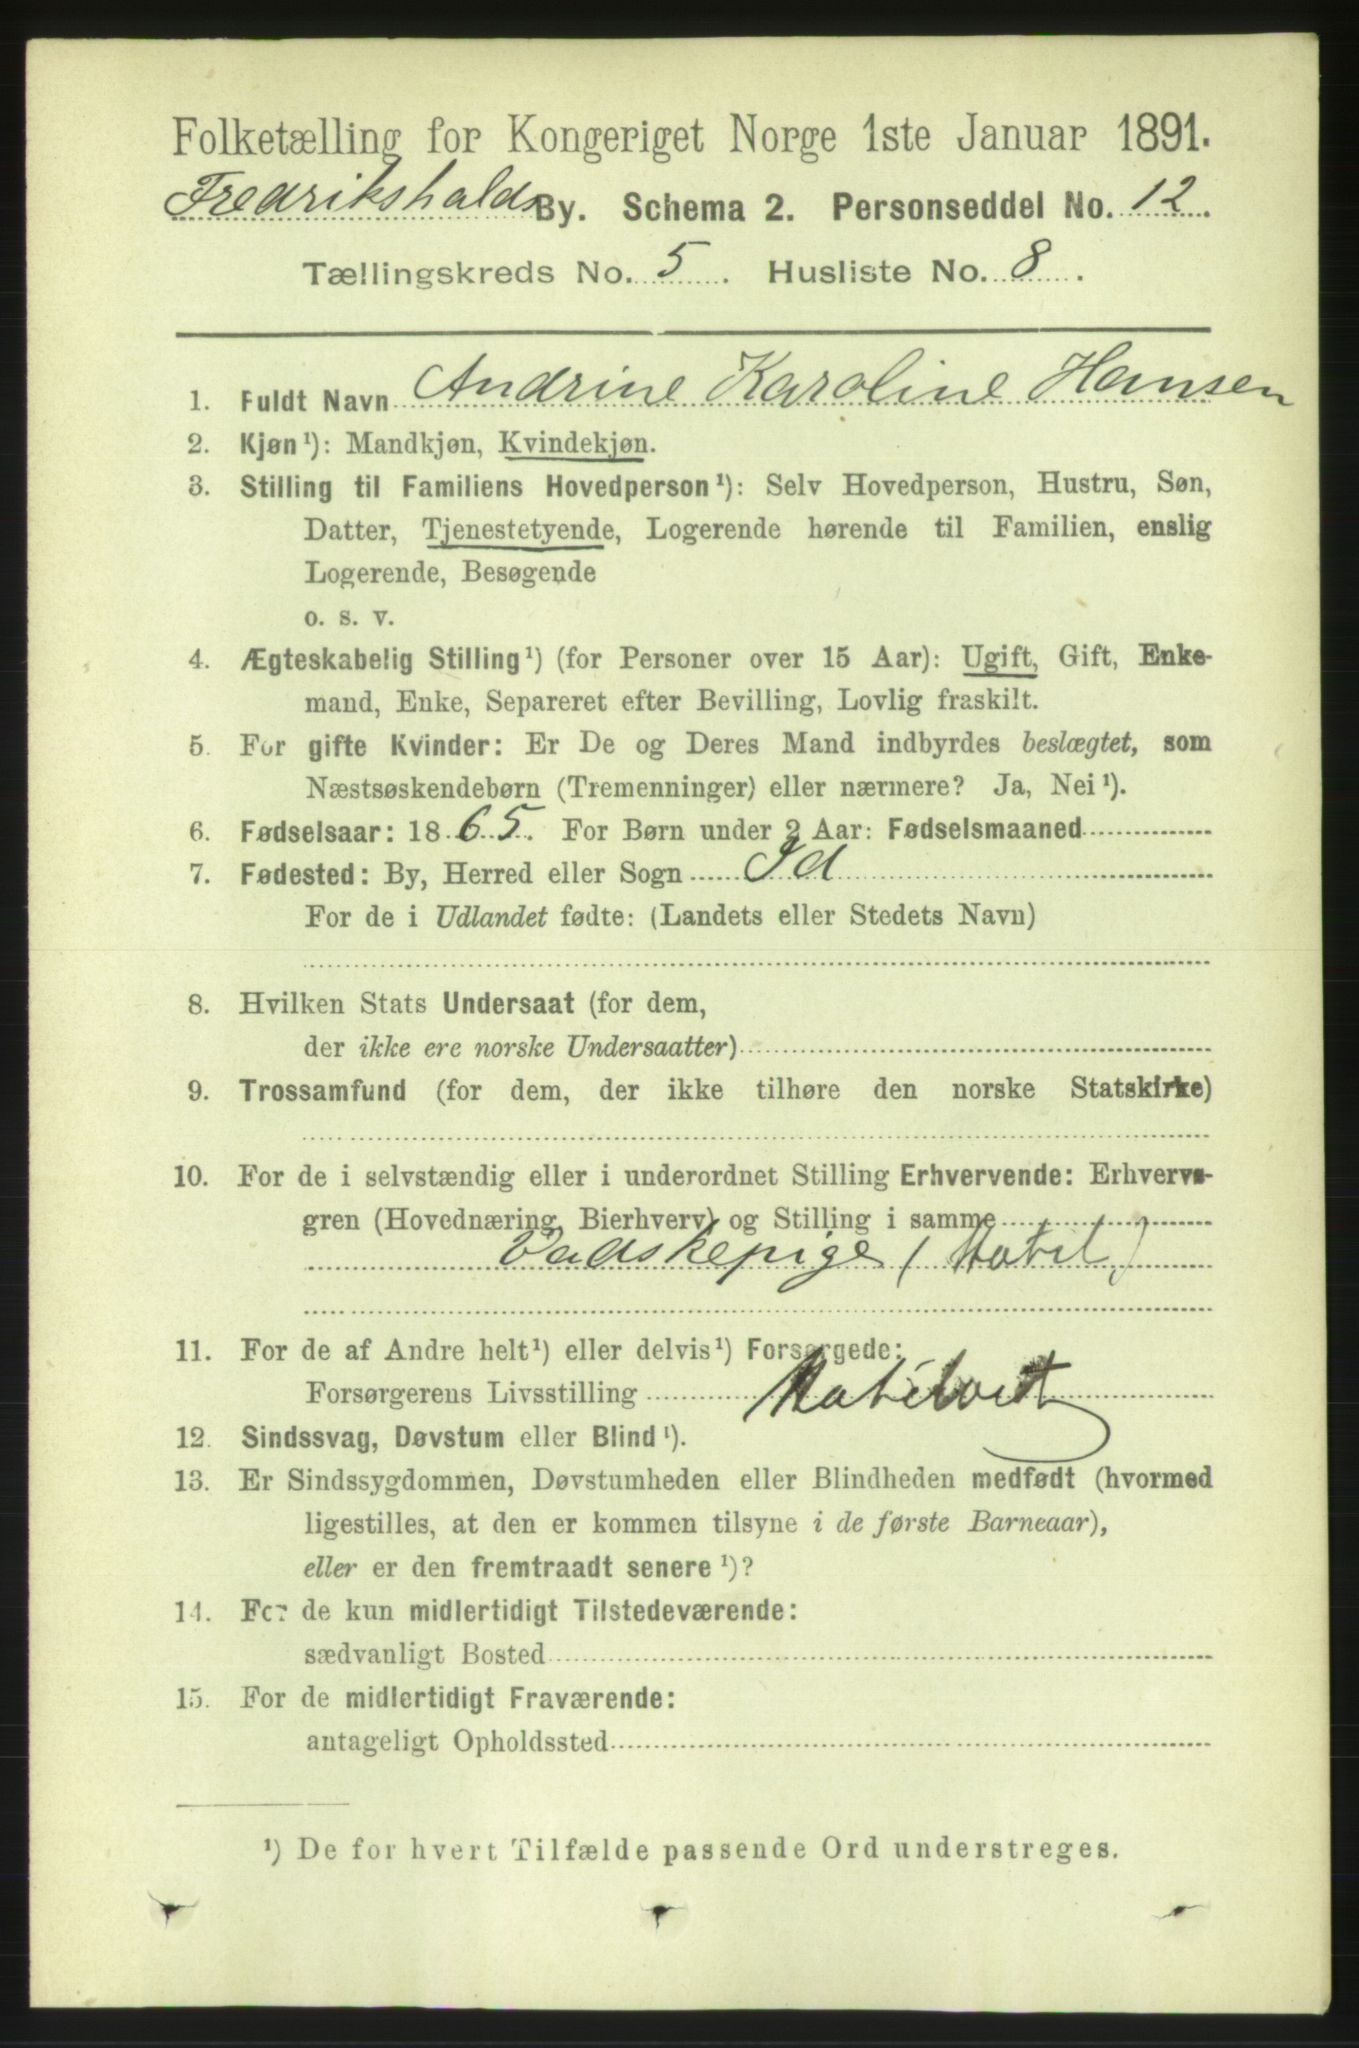 Folketælling for Kongeriget Norge 1ste Januar 1891.
Fredrikshalds By. Schema 2. Personseddel No. 12.
Tællingskreds No. 5. Husliste No. 8.
1. Fuldt Navn Andrine Karoline Hansen
2. Kjøn¹): Mandkjøn, Kvindekjøn.
3. Stilling til Familiens Hovedperson¹): Selv Hovedperson, Hustru, Søn,
Datter, Tjenestetyende, Logerende hørende til Familien, enslig
Logerende, Besøgende
o. s. v.
4. Ægteskabelig Stilling¹) (for Personer over 15 Aar): Ugift, Gift, Enke-
mand, Enke, Separeret efter Bevilling, Lovlig fraskilt.
5. For gifte Kvinder: Er De og Deres Mand indbyrdes beslægtet, som
Næstsøskendebørn (Tremenninger) eller nærmere? Ja, Nei¹).
6. Fødselsaar: 1865. For Børn under 2 Aar: Fødselsmaaned
7. Fødested: By, Herred eller Sogn Id
For de i Udlandet fødte: (Landets eller Stedets Navn)
8. Hvilken Stats Undersaat (for dem,
der ikke ere norske Undersaatter)
9. Trossamfund (for dem, der ikke tilhøre den norske Statskirke)
10. For de i selvstændig eller i underordnet Stilling Erhvervende: Erhvervs-
gren (Hovednæring, Bierhverv) og Stilling i samme
Vadskepige (Hotel)
11. For de af Andre helt¹) eller delvis¹) Forsørgede:
Forsørgerens Livsstilling Hotelvert
12. Sindssvag, Døvstum eller Blind¹).
13. Er Sindssygdommen, Døvstumheden eller Blindheden medfødt (hvormed
ligestilles, at den er kommen tilsyne i de første Barneaar),
eller er den fremtraadt senere¹)?
14. For de kun midlertidigt Tilstedeværende:
sædvanligt Bosted
15. For de midlertidigt Fraværende:
antageligt Opholdssted
¹) De for hvert Tilfælde passende Ord understreges.